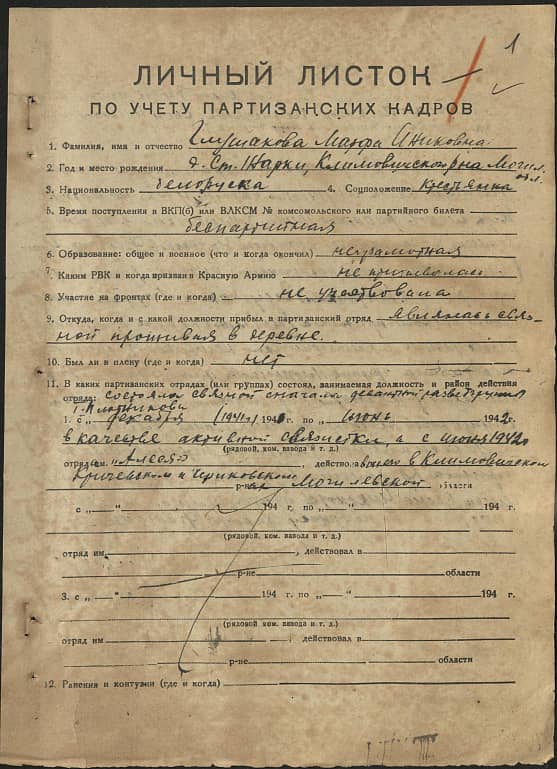 1
ЛИЧНЫЙ ЛИСТОК
ПО УЧЕТУ ПАРТИЗАНСКИХ КАДРОВ
1. Фамилия, имя и отчество Глушакова Марфа
2. Год и место рождения д. Ст. Шарки, Климовичского р-на Могил. обл.
3. Национальность белоруска 4. Соцположение Крестьянка
5. Время поступления в ВКП(б) или ВЛКСМ № комсомольского или партийного билета
беспартийная
6. Образование: общее и военное (что и когда окончил) неграмотная
7. Каким РВК и когда призван в Красную Армию не призывалась
8. Участие на фронтах (где и когда) не участвовала
9. Откуда, когда и с какой должности прибыл в партизанский отряд являлась связ-
ной проживая в деревне.
10. Был ли в плену (где и когда) нет
11. В каких партизанских отрядах (или группах) состоял, занимаемая должность и район действия
отряда: состояла связной сначала десантной разведгруппы
1. с „ декабря (1941г) 194 г. по „ июнь 1942 г.
в качестве активной связистки, а с июня 1942г
(рядовой, ком. взвода и т. д.)
отряд им. „Алеся" , действовал в Климовичском
Кричевском и Чериковском
р-нах Могилевской области
с „ — " 194 г. по „ — " 194 г.
(рядовой, ком. взвода и т. д.)
отряд им. , действовал в
р-не области
3. с „ — " 194 г. по „ — " 194 г.
(рядовой, ком. взвода и т. д.)
отряд им , действовал в
р-не области
12. Ранения и контузии (где и когда)